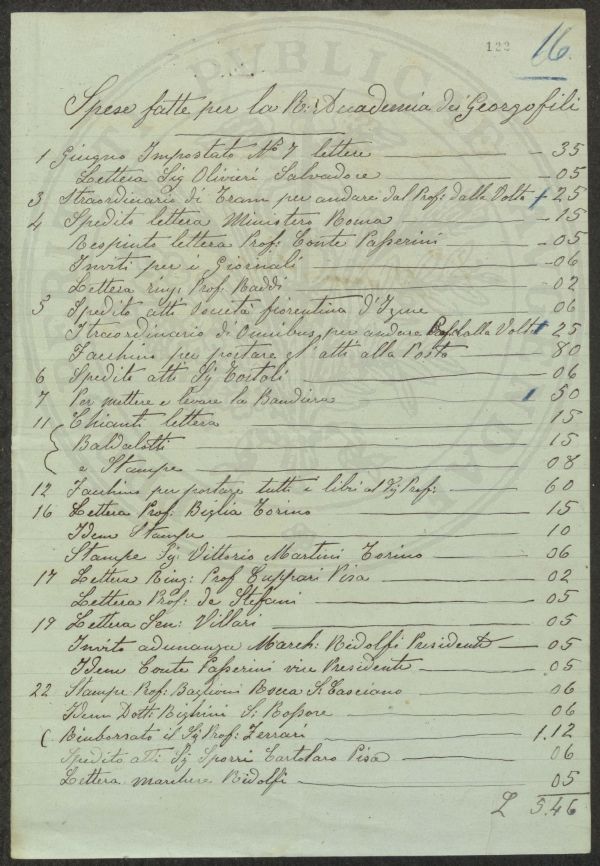 122
16
Spese fatte per la R: Accademia dei Georgofili
1 Giugno Impostato No 7 lettere — 35
Lettera Sig Olivieri Salvadore — 05
3 Straordinario di Tram per andare dal Prof: dalla Volta + 25
4 Spedito lettera Ministero Roma — 15
Respinto lettera Prof: Conte Passerini — 05
Inviti per i Giornali — 06
Lettera ring: Prof. Raddi — 02
5 Spedito atti Società fiorentina d'Igne 06
Straordinario di Omnibus per andare dalla Volta 25
Facchino per portare gl'atti alla Posta 80
6 Spedito atti Sj Tortoli — 06
7 Per mettere e levare la Bandiera 50
11 Chianti lettera — 15
Baldalotti — 15
e Stampe — 08
12 Facchino per portare tutti i libri al Sj Prof: — 60
16 Lettera Prof: Biglia Torino — 15
Idem Stampe — 10
Stampe Sj: Vittorio Martini Torino — 06
17 Lettera Ring: Prof Cuppari Pisa — 02
Lettera Prof: de Stefani — 05
19 Lettera Sen: Villari — 05
Invito adunanza March: Ridolfi Presidente — 05
Idem Conte Passerini vice Presidente — 05
22 Stampe Prof: Baglioni Rocca S. Casciano — 06
Idem Dott: Bighini S: Rossore — 06
( Rimborsato il Sj Prof: Ferrari — 1.12
Spedito atti Sj Sporri Cartolaro Pisa — 06
Lettera marchese Ridolfi — 05
L 5.46